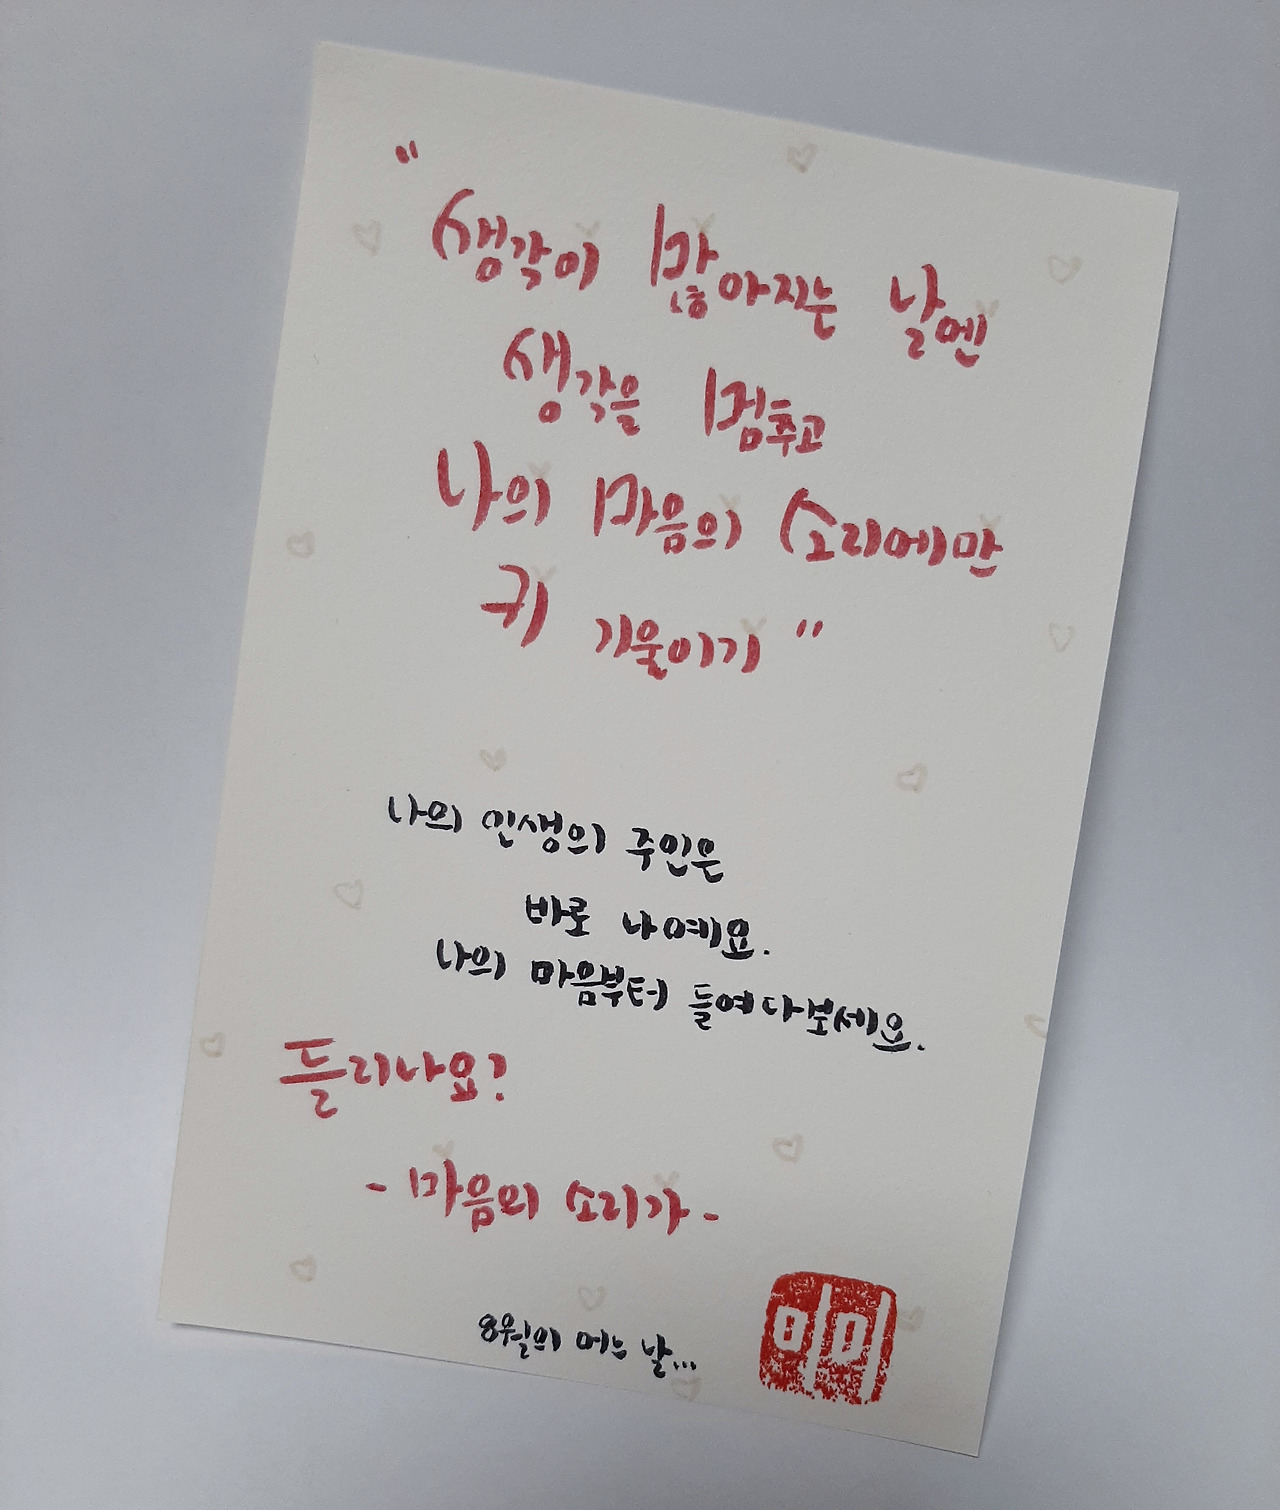 "생각이 많아지는 날엔
생각을 멈추고
나의 마음의 소리에만
귀 기울이기"
나의 인생의 주인은
바로 나예요.
나의 마음부터 들여다보세요.
들리나요?
- 마음의 소리가 -
8월의 어느 날...
이미